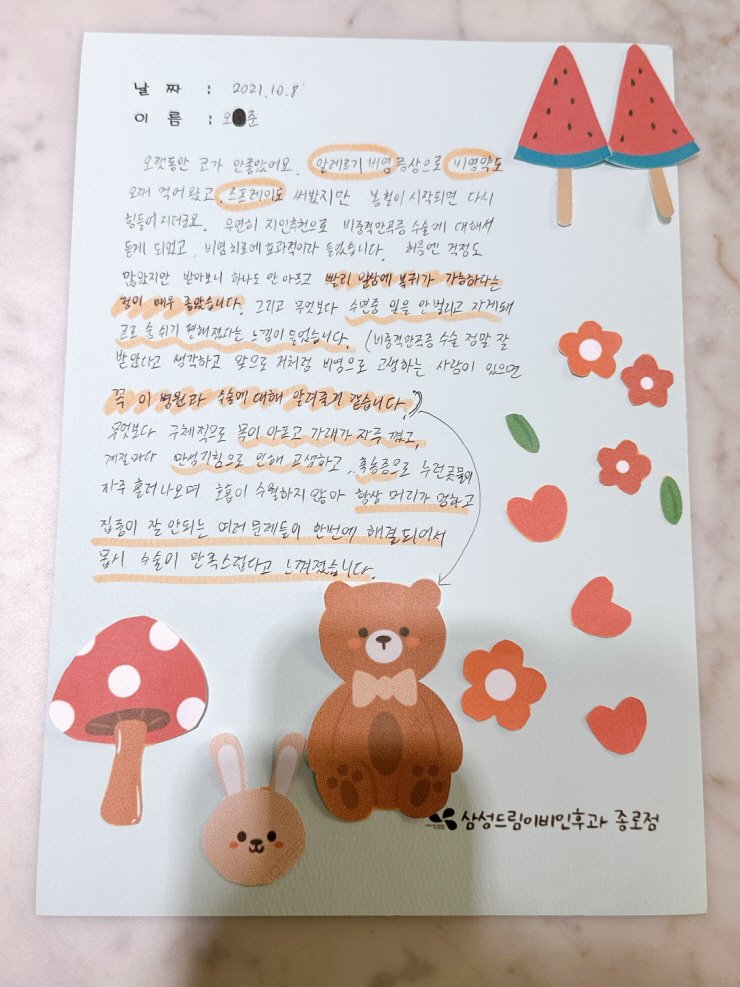 날 짜 : 2021.10.8
이 름 : 오 준
오랫동안 코가 안좋았어요. 알레르기 비염 증상으로 비염약도
오래 먹어 왔고, 스프레이도 써봤지만 봄철이 시작되면 다시
힘들어 지더군요. 우연히 지인추천으로 비중격만곡증 수술에 대해서
듣게 되었고, 비염 치료에 효과적이라 들었습니다. 처음엔 걱정도
많았지만 받아보니 하나도 안 아프고 빨리 일상에 복귀가 가능하다는
점이 매우 좋았습니다. 그리고 무엇보다 수면중 입을 안 벌리고 자게돼
코로 숨 쉬기 편해졌다는 느낌이 들었습니다. (비중격만곡증 수술 정말 잘
받았다고 생각하고 앞으로 저처럼 비염으로 고생하는 사람이 있으면
꼭 이 병원과 수술에 대해 알려줄거 같습니다.)
무엇보다 구체적으로 목이 아프고 가래가 자주 꼈고,
계절마다 만성기침으로 인해 고생하고, 축농증으로 누런콧물이
자주 흘러 나오며 호흡이 수월하지 않아 항상 머리가 멍하고
집중이 잘 안되는 여러 문제들이 한번에 해결되어서
몹시 수술이 만족스럽다고 느껴졌습니다.
삼성드림이비인후과 종로점